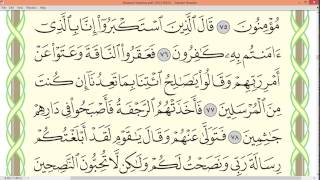 مُؤْمِنُونَ ٧٥ قَالَ الَّذِينَ اسْتَكْبَرُوا إِنَّا بِالَّذِي
ءَامَنتُم بِهِ كَٰفِرُونَ ٧٦ فَعَقَرُوا النَّاقَةَ وَعَتَوْا عَنْ
أَمْرِ رَبِّهِمْ وَقَالُوا يَٰصَٰلِحُ ائْتِنَا بِمَا تَعِدُنَا إِن كُنتَ
مِنَ الْمُرْسَلِينَ ٧٧ فَأَخَذَتْهُمُ الرَّجْفَةُ فَأَصْبَحُوا فِي دَارِهِمْ
جَٰثِمِينَ ٧٨ فَتَوَلَّىٰ عَنْهُمْ وَقَالَ يَٰقَوْمِ لَقَدْ أَبْلَغْتُكُمْ
رِسَالَةَ رَبِّي وَنَصَحْتُ لَكُمْ وَلَٰكِن لَّا تُحِبُّونَ النَّٰصِحِينَ